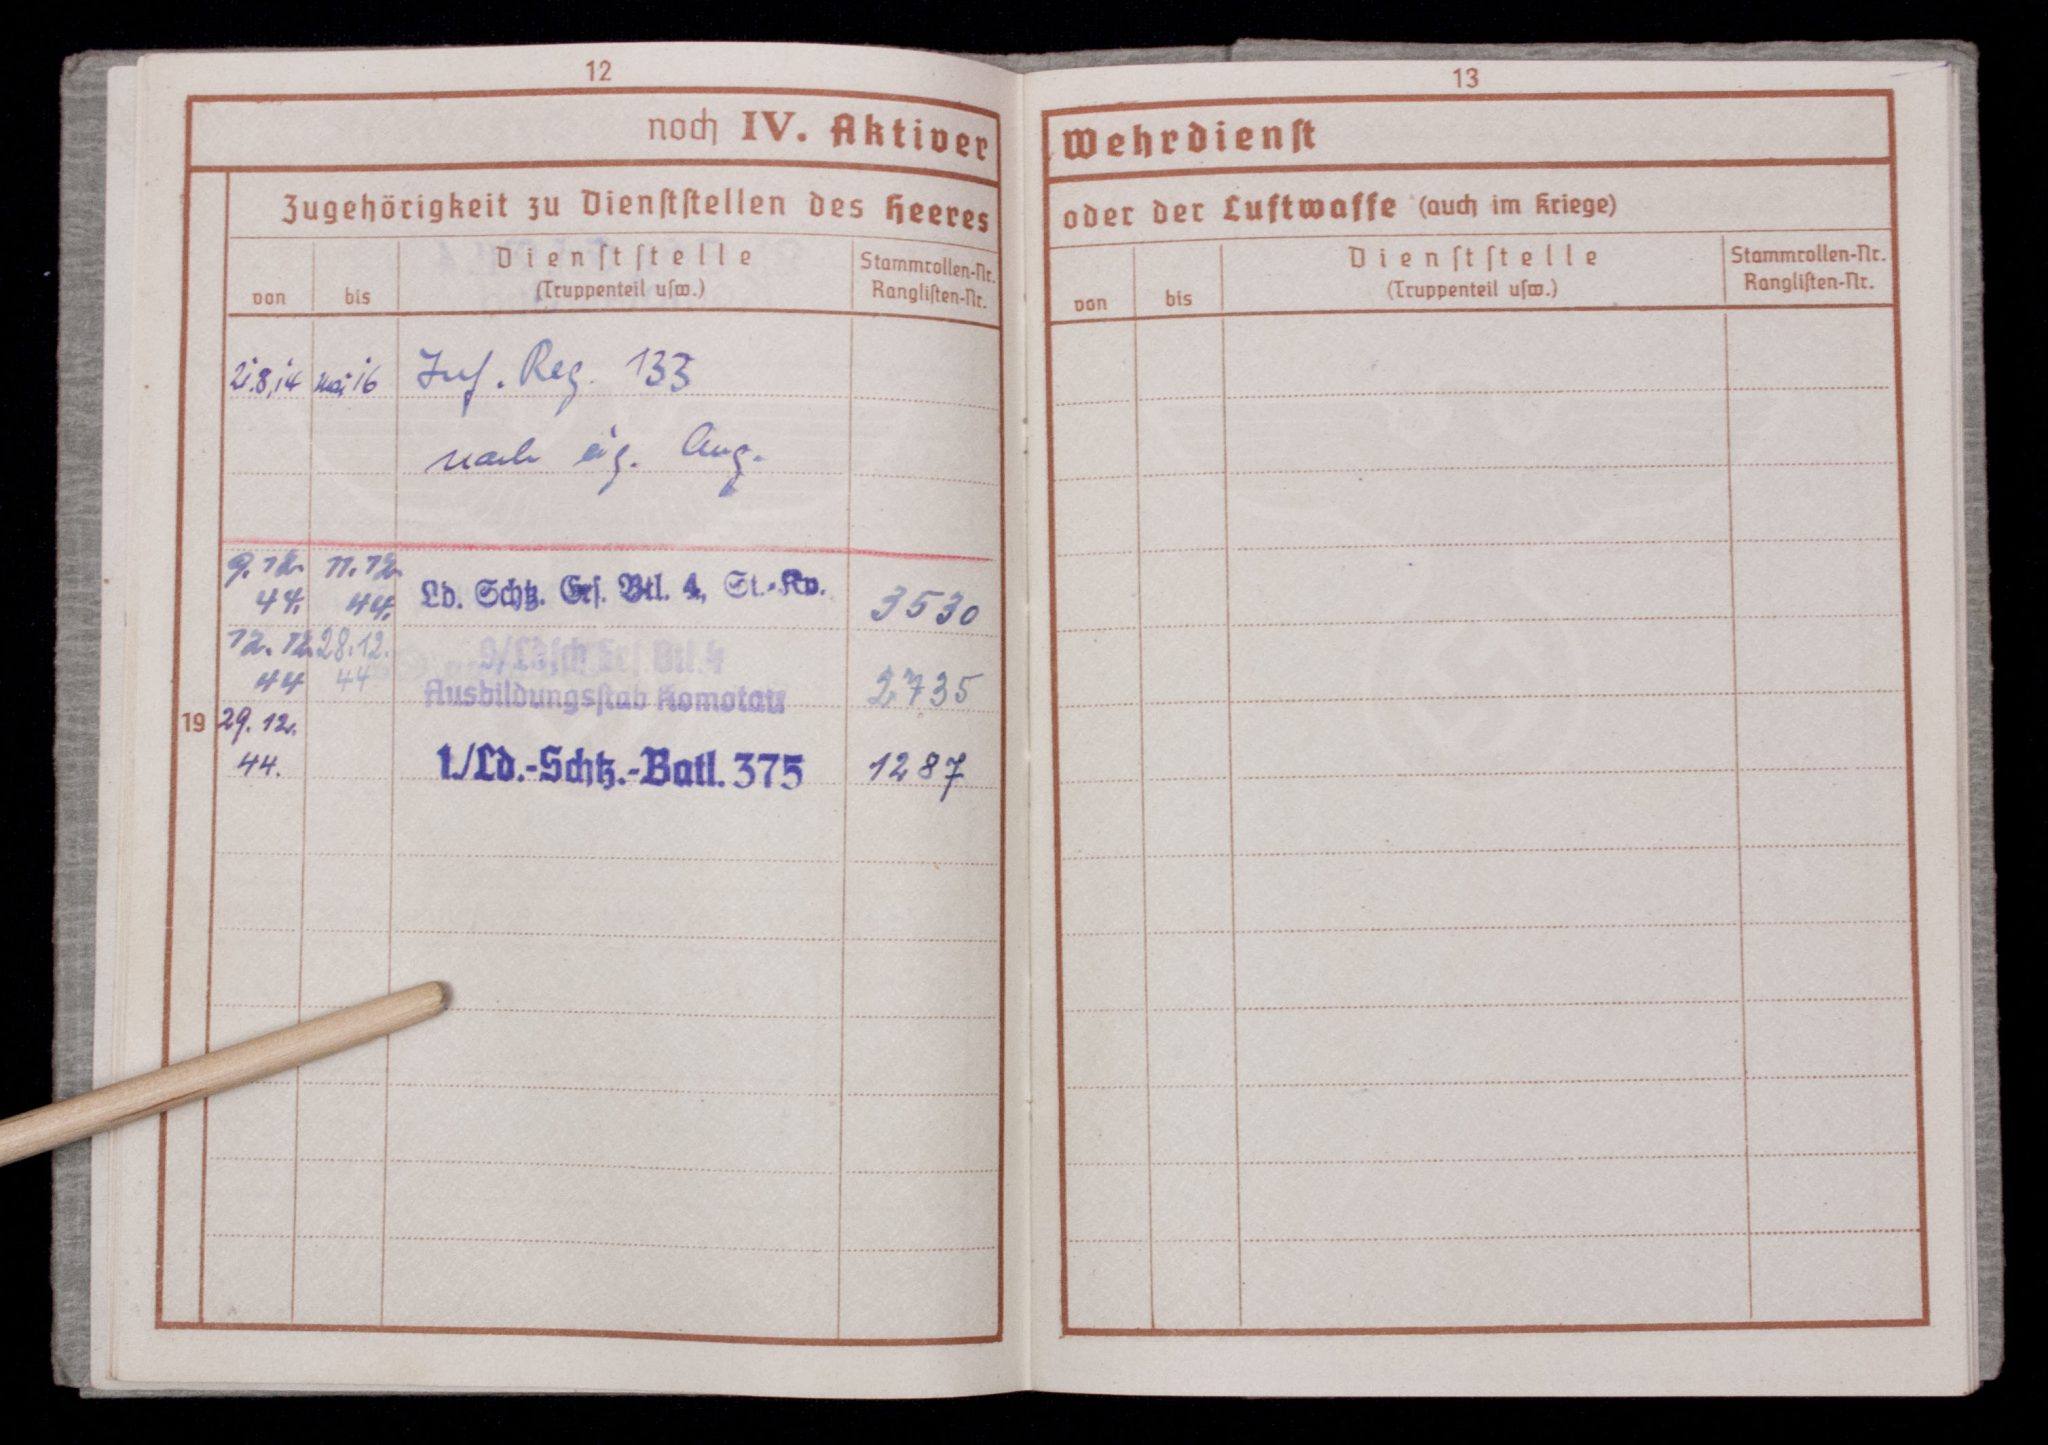 12
noch IV. Aktiver
Zugehörigkeit zu Dienststellen des Heeres
von bis Dienststelle (Truppenteil usw.) Stammrollen-Nr. Ranglisten-Nr.
2.8.14 Mai 16 Inf. Reg. 133
nach eig. Ang.
9.12. 11.12.
44. 44. Ld. Schtz. Ers. Btl. 4, St.-Kp. 3530
12.12. 28.12. Ldsch Ers Btl. 4
44 44 Ausbildungsstab Komotau 2735
19 29.12.
44. 1./Ld.-Schtz.-Batl. 375 1287
13
Wehrdienst
oder der Luftwaffe (auch im Kriege)
von bis Dienststelle (Truppenteil usw.) Stammrollen-Nr. Ranglisten-Nr.